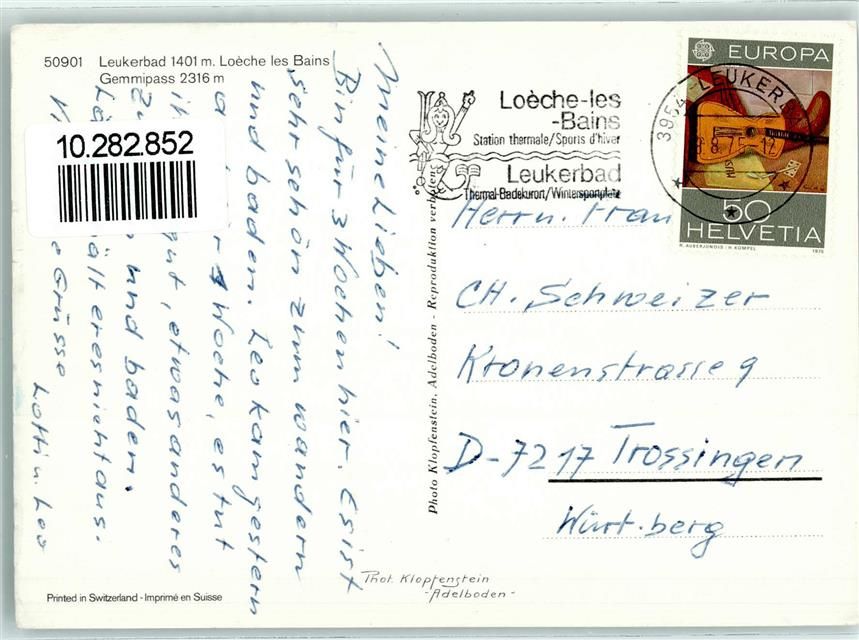 50901 Leukerbad 1401 m. Loèche les Bains
Gemmipass 2316 m
10.282.852
Meine Lieben!
Bin für 3 Wochen hier. Es ist
sehr schön zum wandern
und baden. Leo kam gestern
Woche, es tut
gut, etwas anderes
und baden.
hält er es nicht aus.
Grüsse
Lotti u. Leo
Printed in Switzerland - Imprimé en Suisse
Photo Klopfenstein, Adelboden - Reproduktion verboten
Phot. Klopfenstein
- Adelboden -
Loèche-les
-Bains
Station thermale/Sports d'hiver
Leukerbad
Thermal-Badekurort/Wintersportplatz
3954 LEUKERBAD
EUROPA
50
HELVETIA
R. AUBERJONOIS : H. KÜMPEL 1975
Herrn. Frau
CH. Schweizer
Kronenstrasse 9
D-7217 Trossingen
Würt.berg